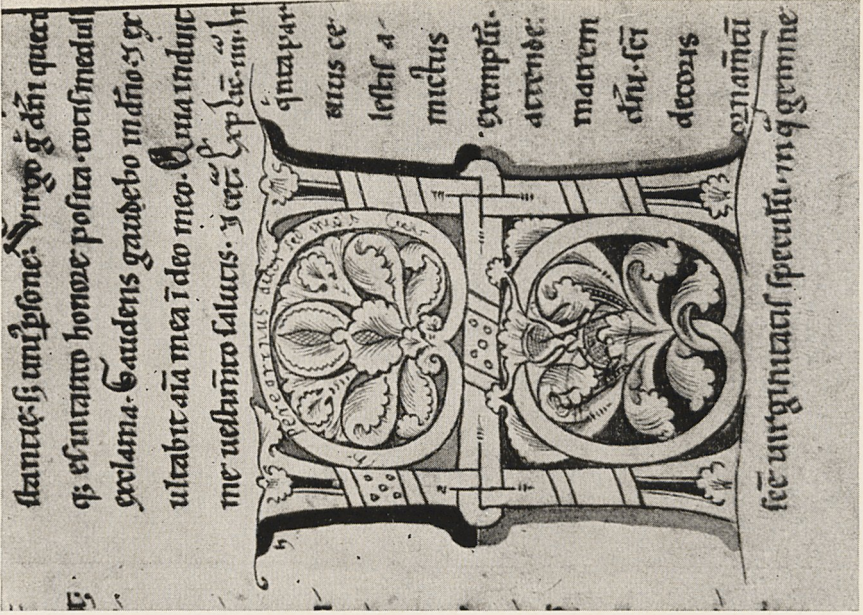 stantie. sʒ uni psone. Virgo g̊ dn̄i
qʒ es intanto honore posita. totis medull
exclama. Gaudens gaudebo in dn̄o. ⁊ ex
ultabit aīa mea ī deo meo. Quia induit
me uestim̄to salutis. ⁊ cet̄.
quia par
uius ce
lestis a-
mictus
exemplū.
attende.
matrem
dn̄i. sc̄i
decoris
ornam̄tū
sc̄e uirginitatis speculū. in q̊ gemine